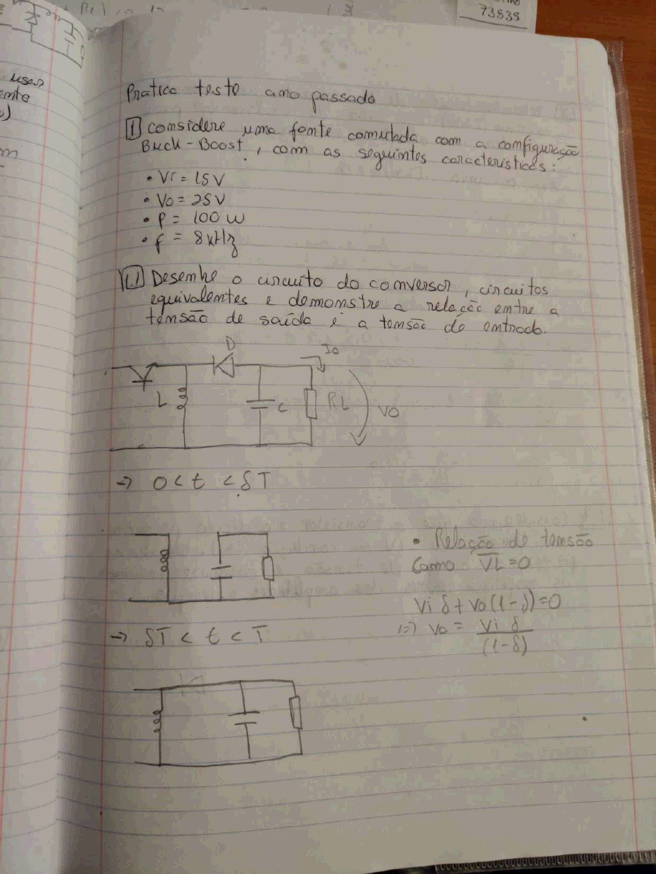 73835
user
Pratica teste ano passado
1 considere uma fonte comutada com a configuração
Buck-Boost, com as seguintes caracteristicas:
• Vi = 15V
• Vo = 25V
• P = 100 W
• f = 8kHz
1.1 Desenhe o circuito do conversor, circuitos
equivalentes e demonstre a relação entre a
tensão de saída e a tensão de entrada.
D
Io
L
C
RL
Vo
→ 0 < t < δT
• Relação de tensão
Como VL = 0
Vi δ + Vo(1-δ) = 0
(=) Vo = Vi δ
(1-δ)
→ δT < t < T